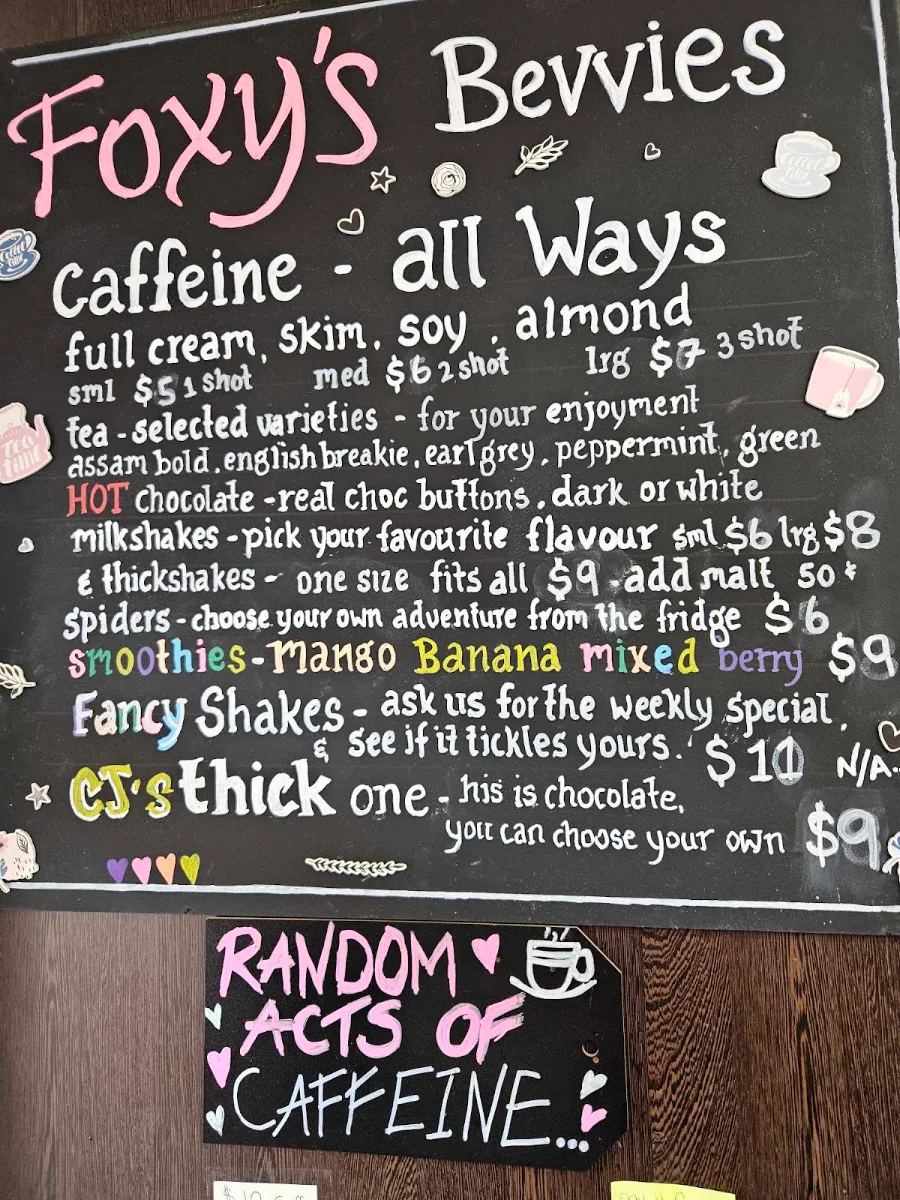 Foxy's Bevvies
Caffeine - all Ways
full cream, skim, soy, almond
sml $5 1 shot med $6 2 shot lrg $7 3 shot
tea - selected varieties - for your enjoyment
assam bold, english breakie, earl grey, peppermint, green
HOT chocolate - real choc buttons, dark or white
milkshakes - pick your favourite flavour sml $6 lrg $8
& thickshakes - one size fits all $9 add malt 50¢
spiders - choose your own adventure from the fridge $6
smoothies - Mango Banana mixed berry $9
Fancy Shakes - ask us for the weekly special,
& see if it tickles yours. $10 N/A..
CJ's thick one - his is chocolate,
you can choose your own $9
RANDOM
ACTS OF
CAFFEINE...